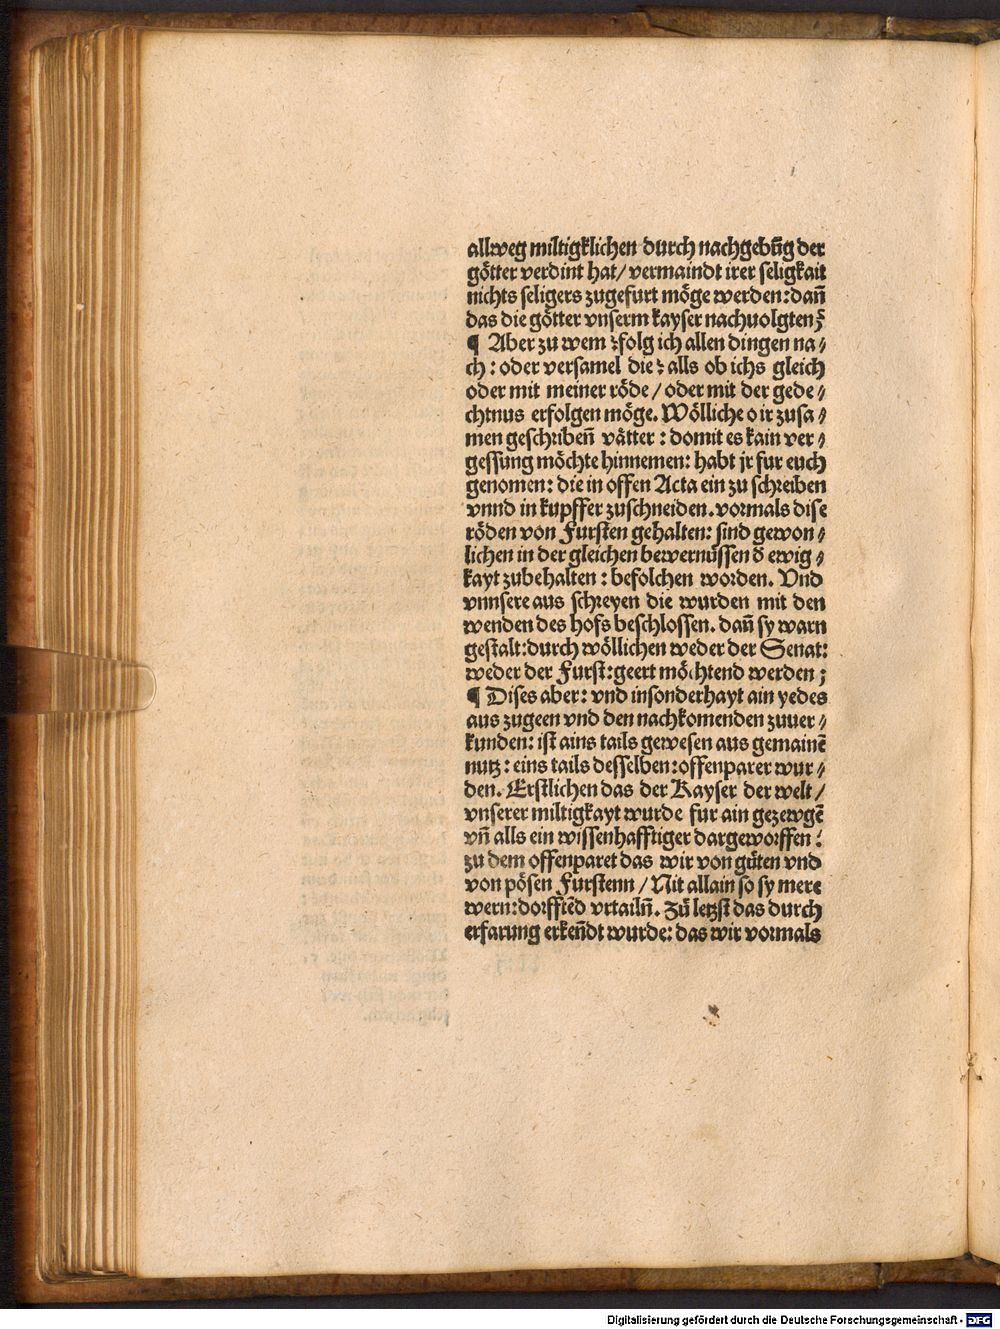 allweg miltigklichen durch nachgebūg der
götter verdint hat/ vermaindt irer seligkait
nichts seligers zugefurt möge werden: dañ
das die götter vnserm kayser nachuolgten ꝛ̃
¶ Aber zu wem ꝛfolg ich allen dingen na⸗
ch : oder versamel die ꝛ alls ob ichs gleich
oder mit meiner röde / oder mit der gede⸗
chtnus erfolgen möge. Wölliche o ir zusa⸗
men geschribeñ våtter : domit es kain ver⸗
gessung möchte hinnemen: habt jr fur euch
genomen: die in offen Acta ein zu schreiben
vnnd in kupffer zuschneiden. vormals dise
röden von Fursten gehalten: sind gewon⸗
lichen in der gleichen bewernussen d̕ ewig⸗
kayt zubehalten : befolchen worden. Vnd
vnnsere aus schreyen die wurden mit den
wenden des hofs beschlossen. dañ sy warn
gestalt: durch wöllichen weder der Senat:
weder der Furst: geert möchtend werden ;
¶ Dises aber: vnd insonderhayt ain yedes
aus zugeen vnd den nachkomenden zuuer⸗
kunden: ist ains tails gewesen aus gemainē
nutz : eins tails desselben: offenparer wur⸗
den. Erstlichen das der Kayser der welt /
vnserer miltigkayt wurde fur ain gezewgē
vñ alls ein wissenhafftiger dargeworffen :
zu dem offenparet das wir von gůten vnd
von pösen Furstenn / Nit allain so sy mere
wern: dorfftēd vrtailñ. Zů letzst das durch
erfarung erkeñdt wurde: das wir vormals
Digitalisierung gefördert durch die Deutsche Forschungsgemeinschaft - DFG